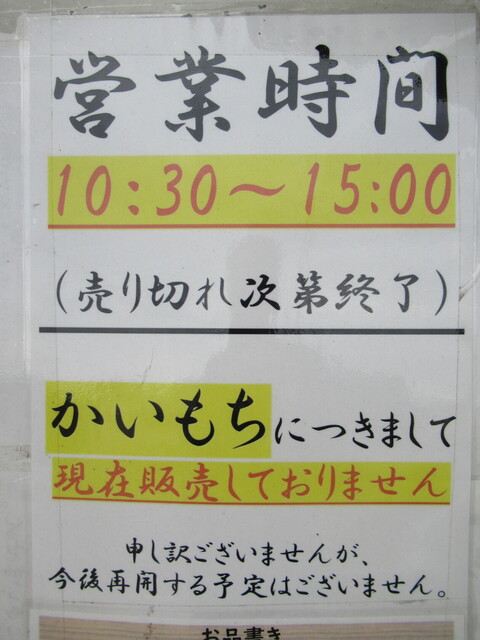 営業時間
10:30～15:00
(売り切れ次第終了)
かいもちにつきまして
現在販売しておりません
申し訳ございませんが、
今後再開する予定はございません。
お品書き